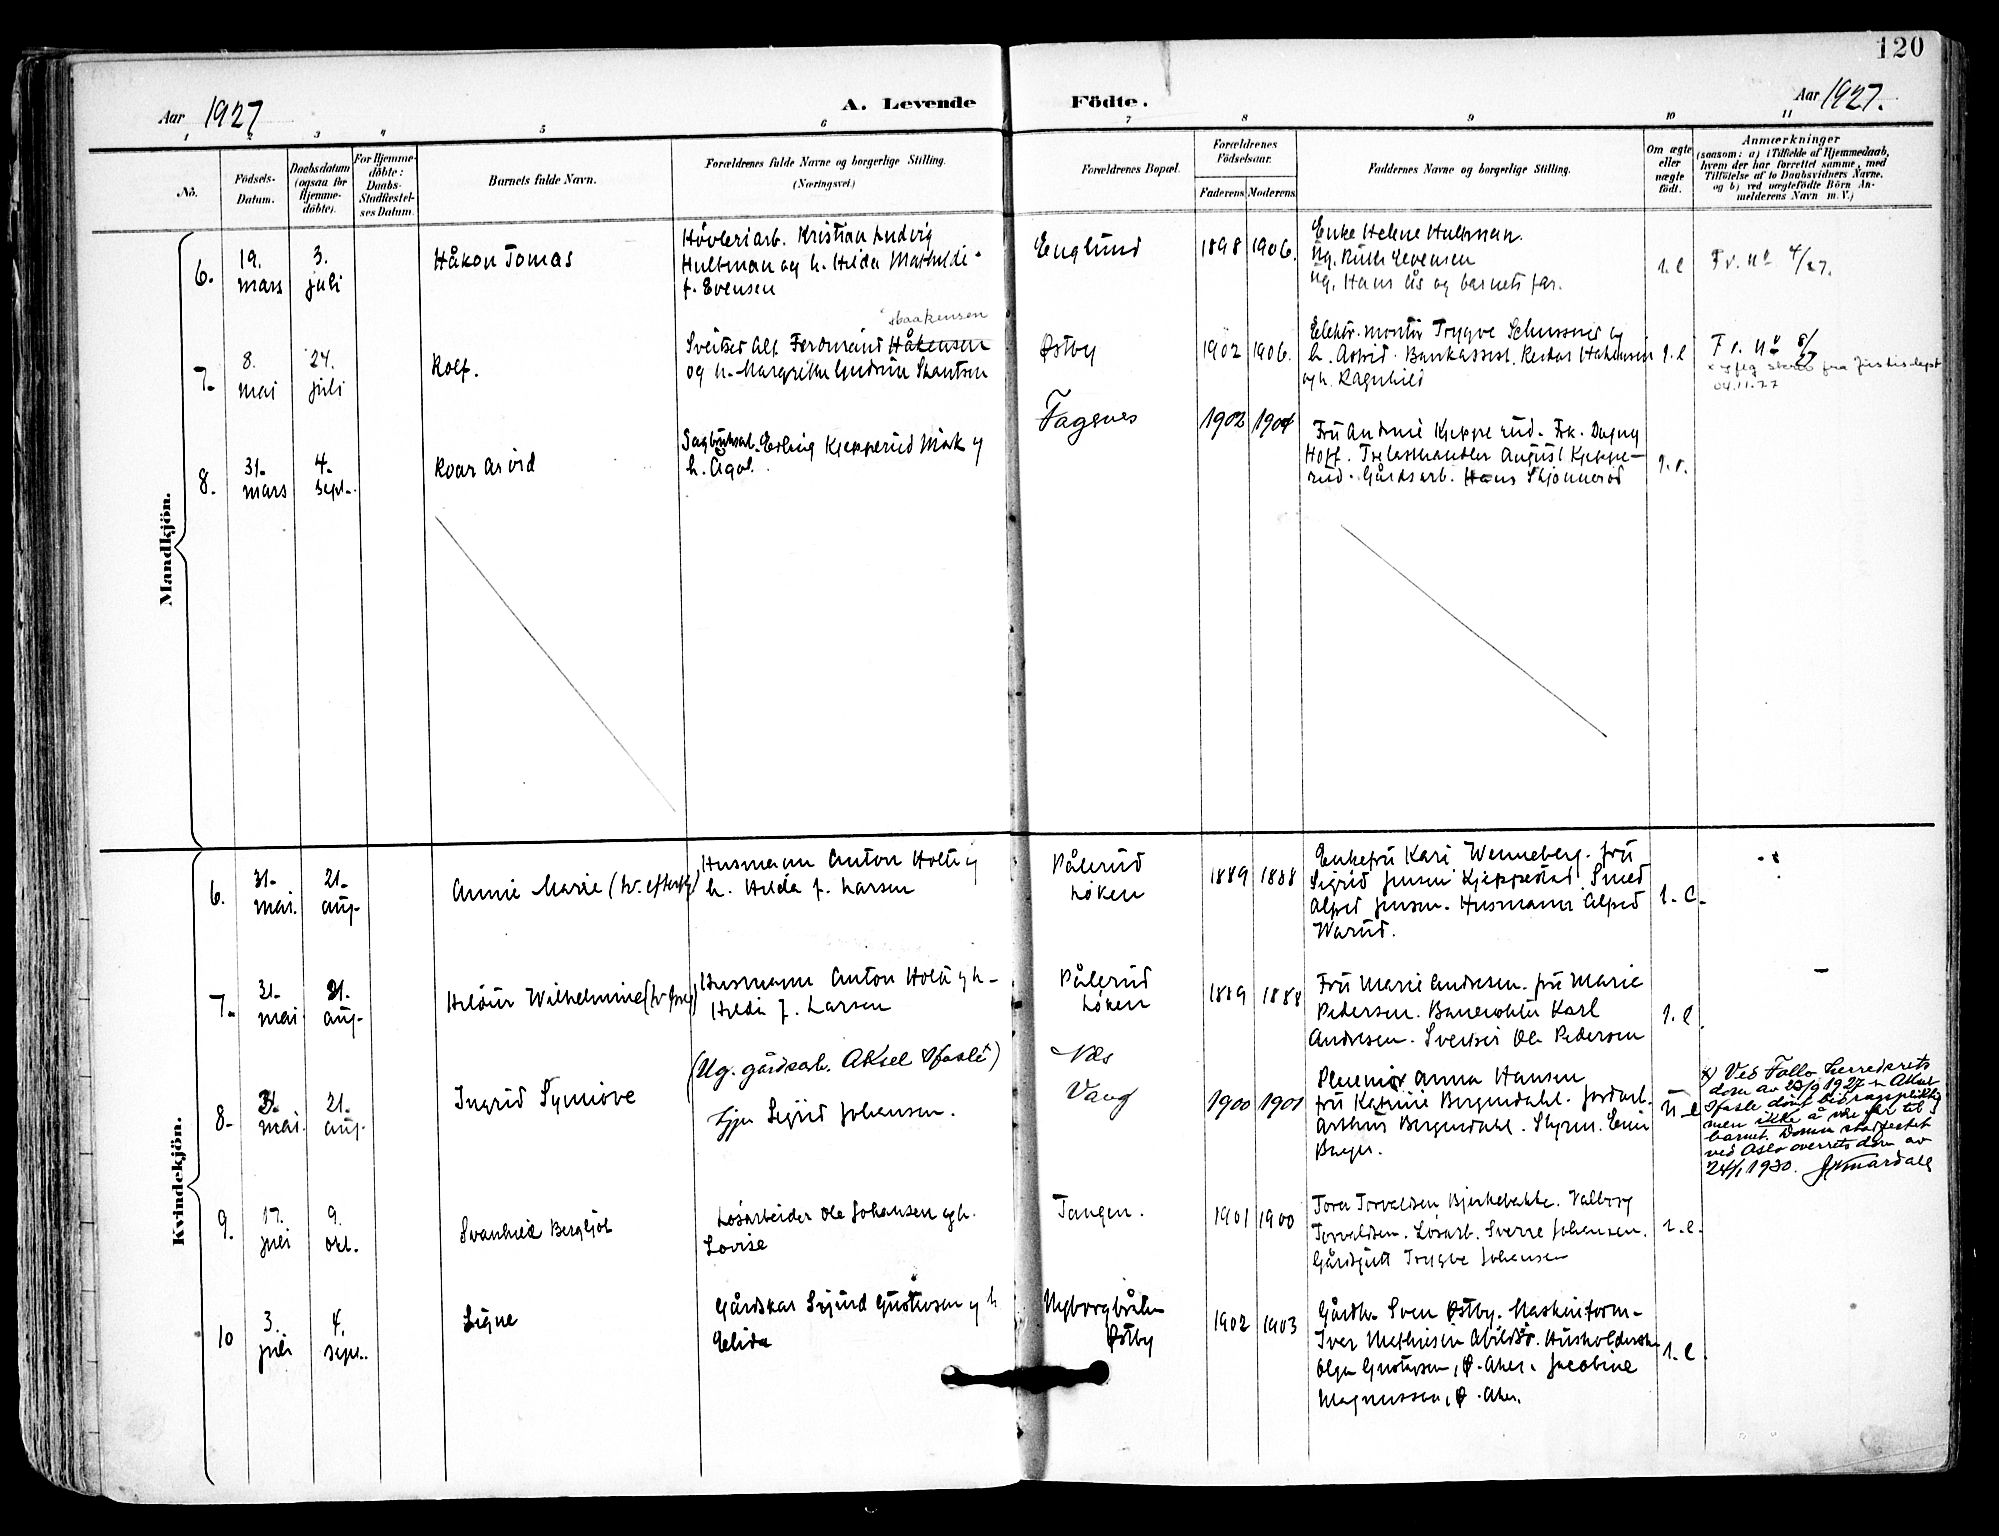 120
Aar 1927
A. Levende Födte.
Aar 1927.
1 2 3 4 5 6 7 8 9 10 11
No.
Födsels-
Datum.
Daabsdatum
(ogsaa for
Hjemme-
döbte).
For Hjemme-
döbte:
Daabs-
Stadfæstel-
ses Datum.
Barnets fulde Navn.
Forældrenes fulde Navne og borgerlige Stilling.
(Næringsvei.)
Forældrenes Bopæl.
Forældrenes
Födselsaar.
Faderens
Moderens.
Faddernes Navne og borgerlige Stilling.
Om ægte
eller
uægte
födt.
Anmærkninger
(saasom: a) i Tilfælde af Hjemmedaab,
hvem der har forrettet samme, med
Tilföielse af to Daabsvidners Navne.
og b) ved uægtefödte Börn An-
melderens Navn m. V.)
Mandkjön.
6.
19.
mars
3.
juli
Håkon Tomas
Høvleriarb. Kristian Ludvig
Hultman og h. Hilda Mathilde
f. Evensen
Englund
1898 1906.
Enke Helene Hultman.
Ug. Ruth Evensen
Ug. Hans Ås og barnets far.
Fr. 4/27.
7.
8.
mai
24.
juli
Rolf.
Haakensen
Sveitser Alf Ferdinand Håkensen
og h. Margrethe Gudrun
Østby
1902 1906.
Elektr. montør Trygve og
h. Astrid. Bankassist. Håkensen
og h. Ragnhild
fra Justisdept
04.11.77
8.
31.
mars
4.
sept.
Roar Arvid
Erling Kjepperud Mork og
h. Ågot.
Fagernes
1902 1904
Fru Andrine Kjepperud. Frk. Dagny
Hoff. Trelasthandler August Kjeppe-
rud. Gårdsarb. Hans Skjønnerød
Kvindekjön.
6.
31.
mai.
21.
aug.
Annie Marie (tv. eftersk)
Husmann Anton Holt og
h. Hilda f. Larsen
Pålerud
Løken
1889 1888
Enkefru Kari Wenneberg. Fru
Sigrid Jensen Kjeppestad. Smed
Alfred Jensen. Husmann Alfred
Warud.
7.
31.
mai
21.
aug.
Hildur Wilhelmine
Husmann Anton Holt og h.
Hilda f. Larsen
Pålerud
Løken
1889 1888
Fru Marie Andresen. fru Marie
Pedersen. Banevokter Karl
Andresen. Sveitser Ole Pedersen
8.
31.
mai.
21.
aug.
Ingrid Synnøve
(Ug. gårdsarb. Aksel Spasle)
Sigrid Johansen.
Næs
Vang
1900 1901
Anna Hansen
fru Katrine Bergendahl. Jordarb.
Arthur Bergendahl. Styrm. Einar
x) Ved Follo herredsrets
dom av 23/9 1927 er Aksel
Spasle dømt bidragspliktig
men ikke å være far til
barnet. Dommen stadfestet
ved Oslo overrets dom av
24/1 1930.
9.
17.
juli
9.
okt.
Svanhild Bergljot
Løsarbeider Ole Johansen og h.
Lovise
Tangen.
1901 1900
Tora Torvaldsen, Bjerkebakke. Valborg
Torvaldsen. Løsarb. Sverre Johansen.
Gårdsgutt Trygve Johansen
10
3.
juli
4.
sept.
Signe
Gårdskar Sigurd Gustavsen og h.
Elida
Nyborgbråten
Østby
1902 1903
Gårdbr. Sven Østby. Maskinform.
Iver Mathisen Abildsø. Husholderske
Olga Gustavsen, Ø. Aker. Jacobine
Magnussen, Ø. Aker.